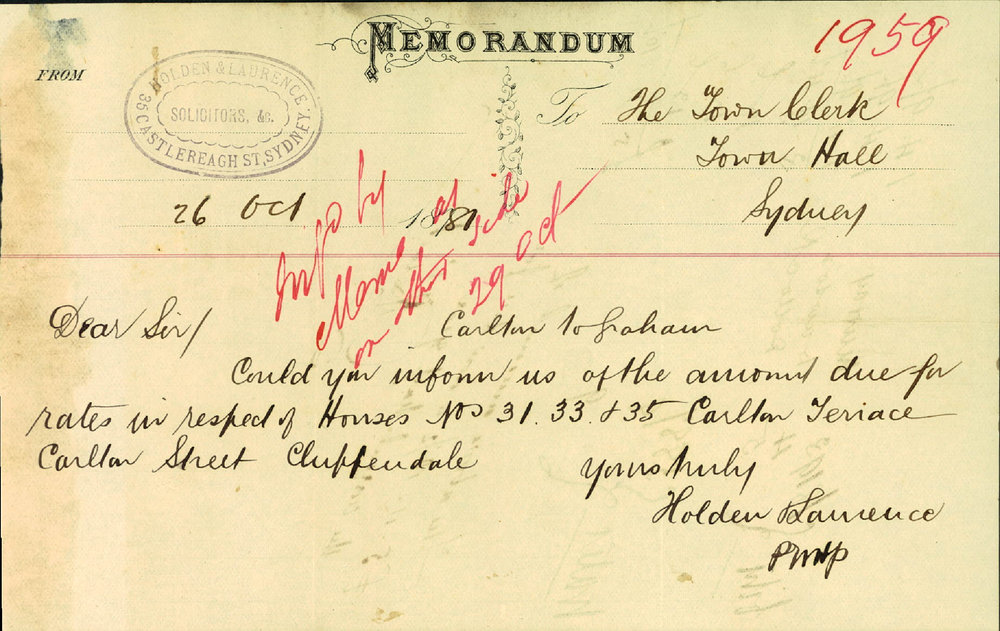 MEMORANDUM
1959
FROM
HOLDEN & LAURENCE.
SOLICITORS, &c.
35 CASTLEREAGH ST, SYDNEY.
To The Town Clerk
Town Hall
Sydney
26 Oct 1881
by
Memo as
on that side
29 Oct
Dear Sir/
Carlton to Graham
Could you inform us of the amount due for
rates in respect of Houses Nos 31. 33. & 35 Carlton Terrace
Carlton Street Chippendale
Yours truly
Holden & Laurence